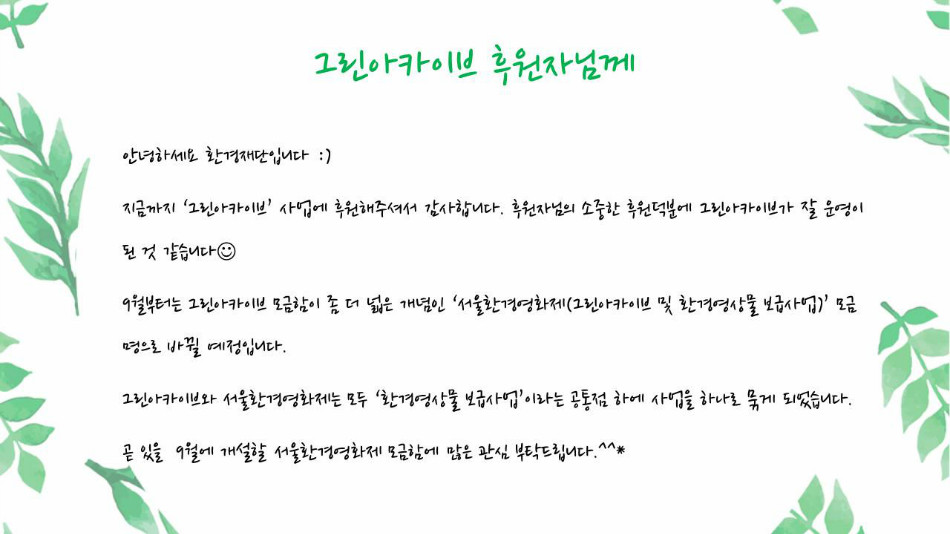 그린아카이브 후원자님께
안녕하세요 환경재단입니다 :)
지금까지 '그린아카이브' 사업에 후원해주셔서 감사합니다. 후원자님의 소중한 후원덕분에 그린아카이브가 잘 운영이
된 것 같습니다☺
9월부터는 그린아카이브 모금함이 좀 더 넓은 개념인 '서울환경영화제(그린아카이브 및 환경영상물 보급사업)' 모금
명으로 바뀔 예정입니다.
그린아카이브와 서울환경영화제는 모두 '환경영상물 보급사업'이라는 공통점 하에 사업을 하나로 묶게 되었습니다.
곧 있을 9월에 개설할 서울환경영화제 모금함에 많은 관심 부탁드립니다.^^*